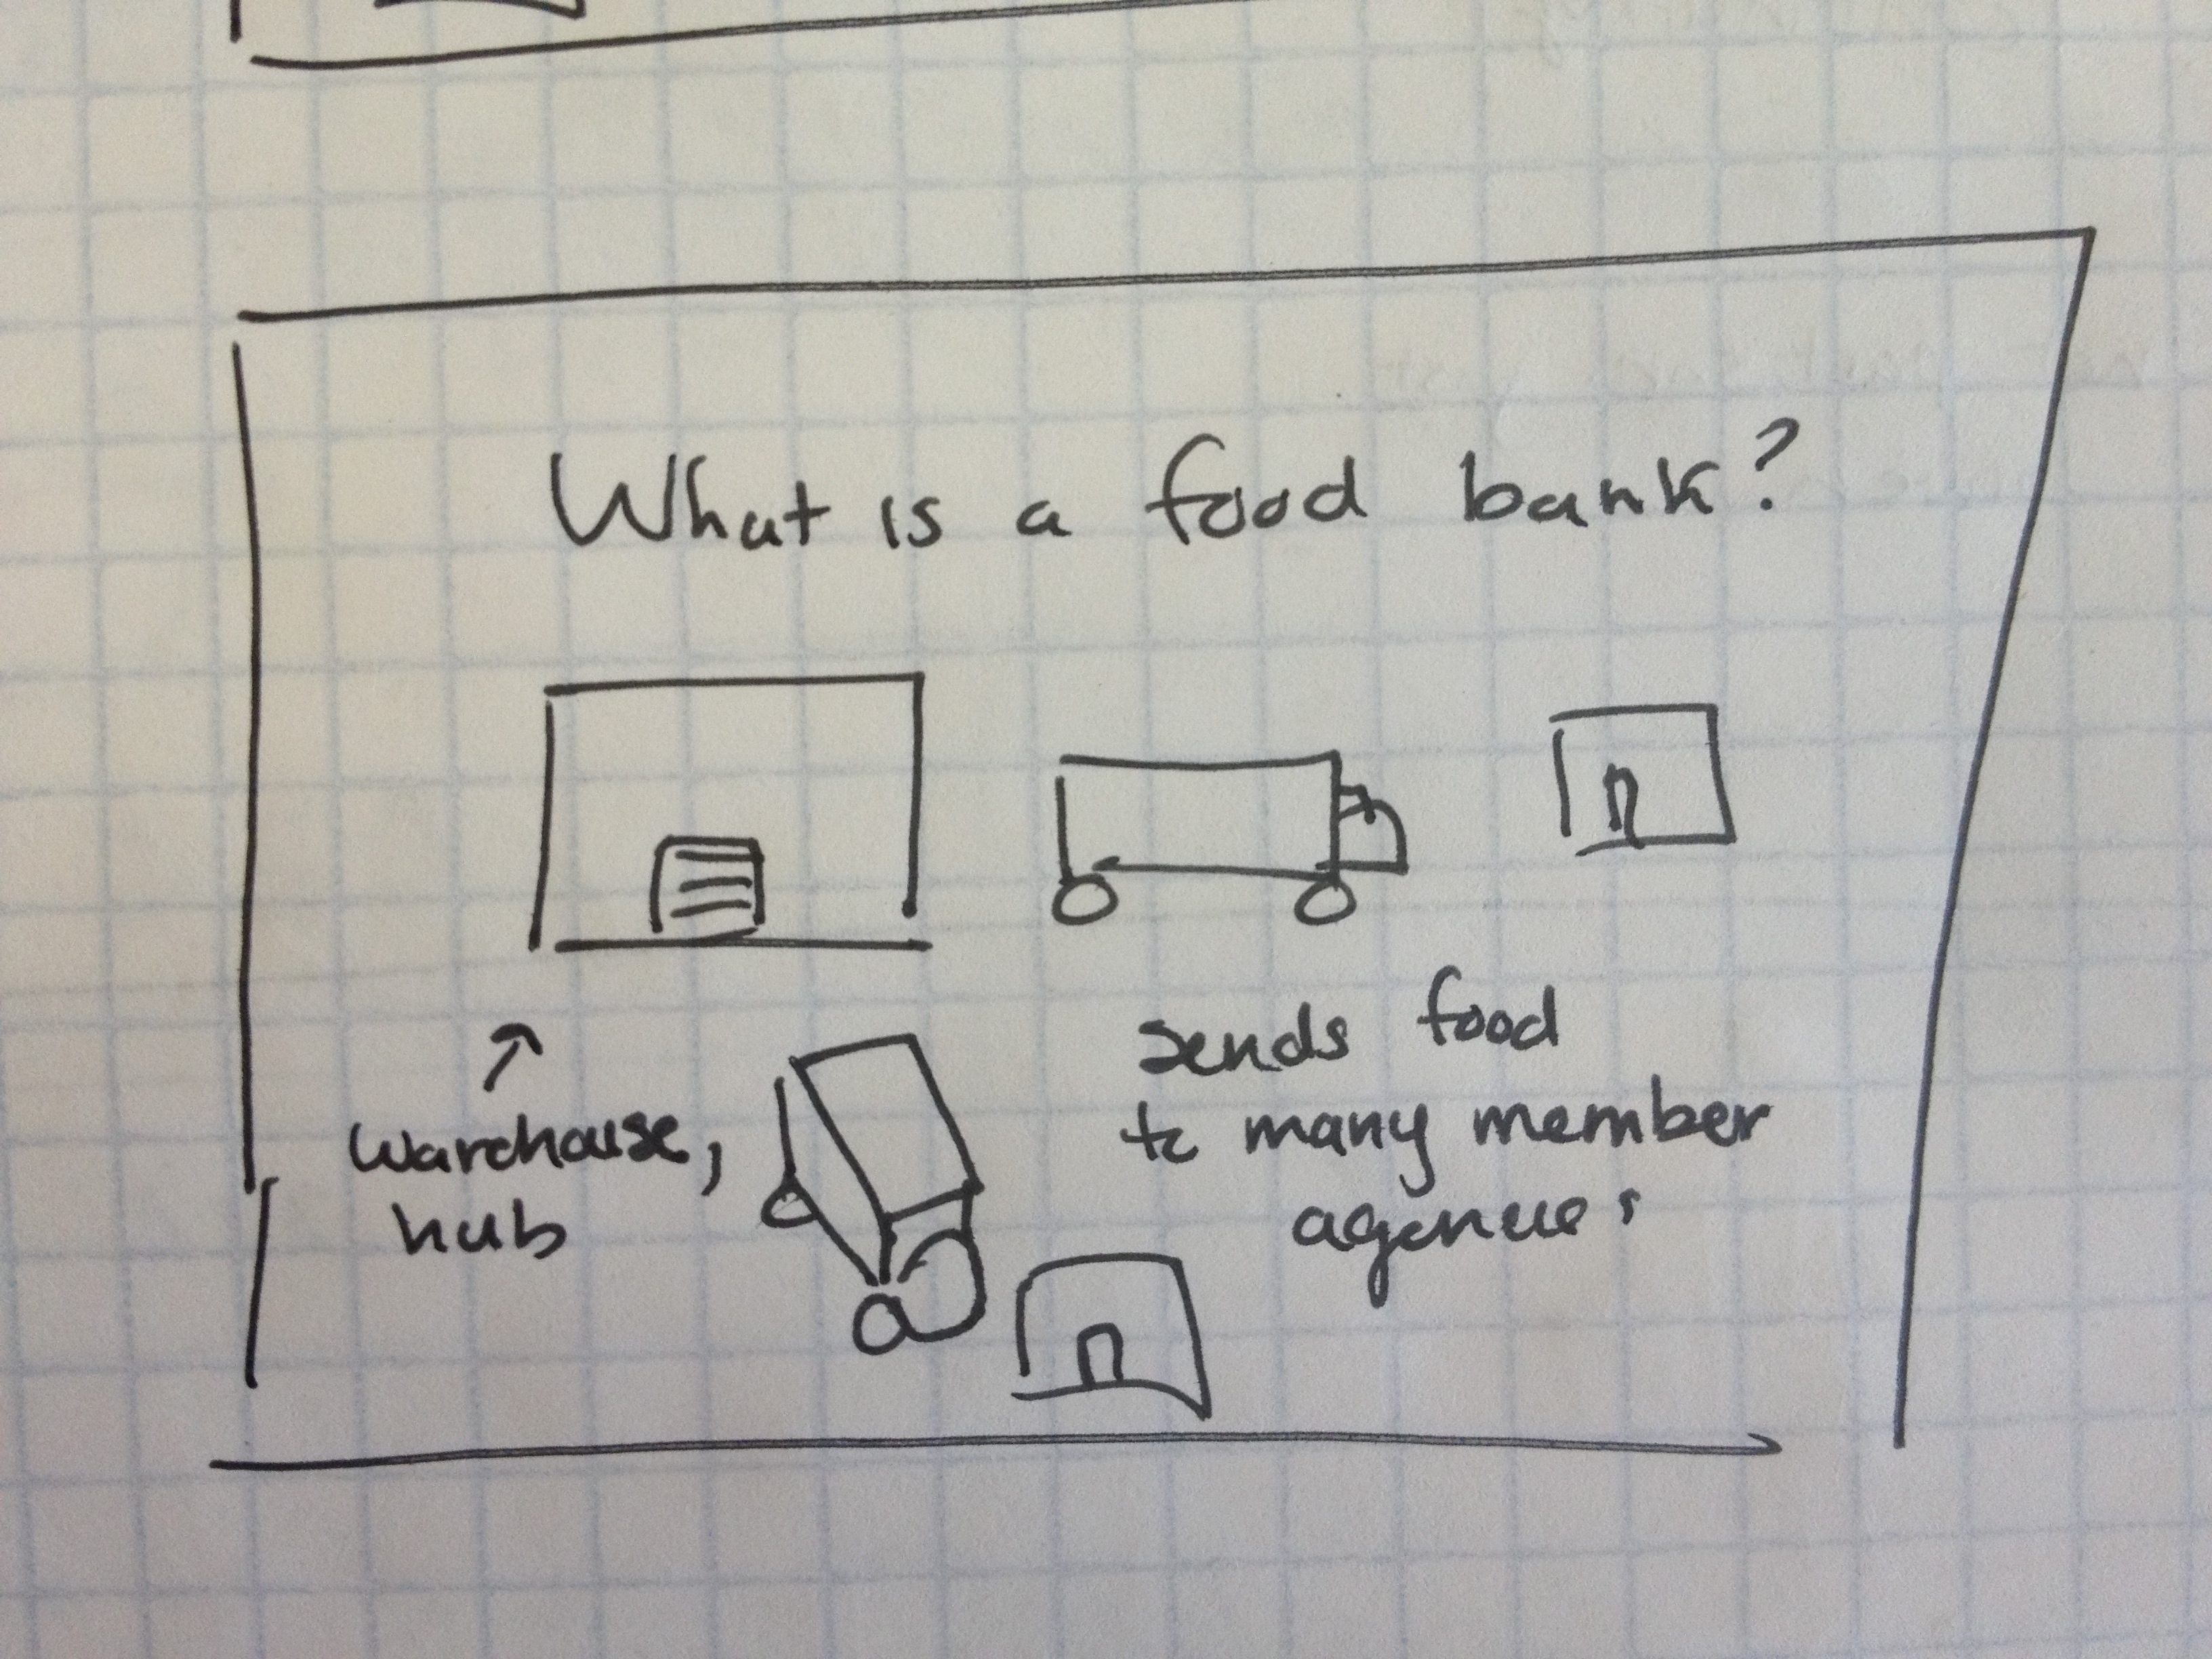 What is a food bank?
warehouse,
hub
sends food
to many member
agencies